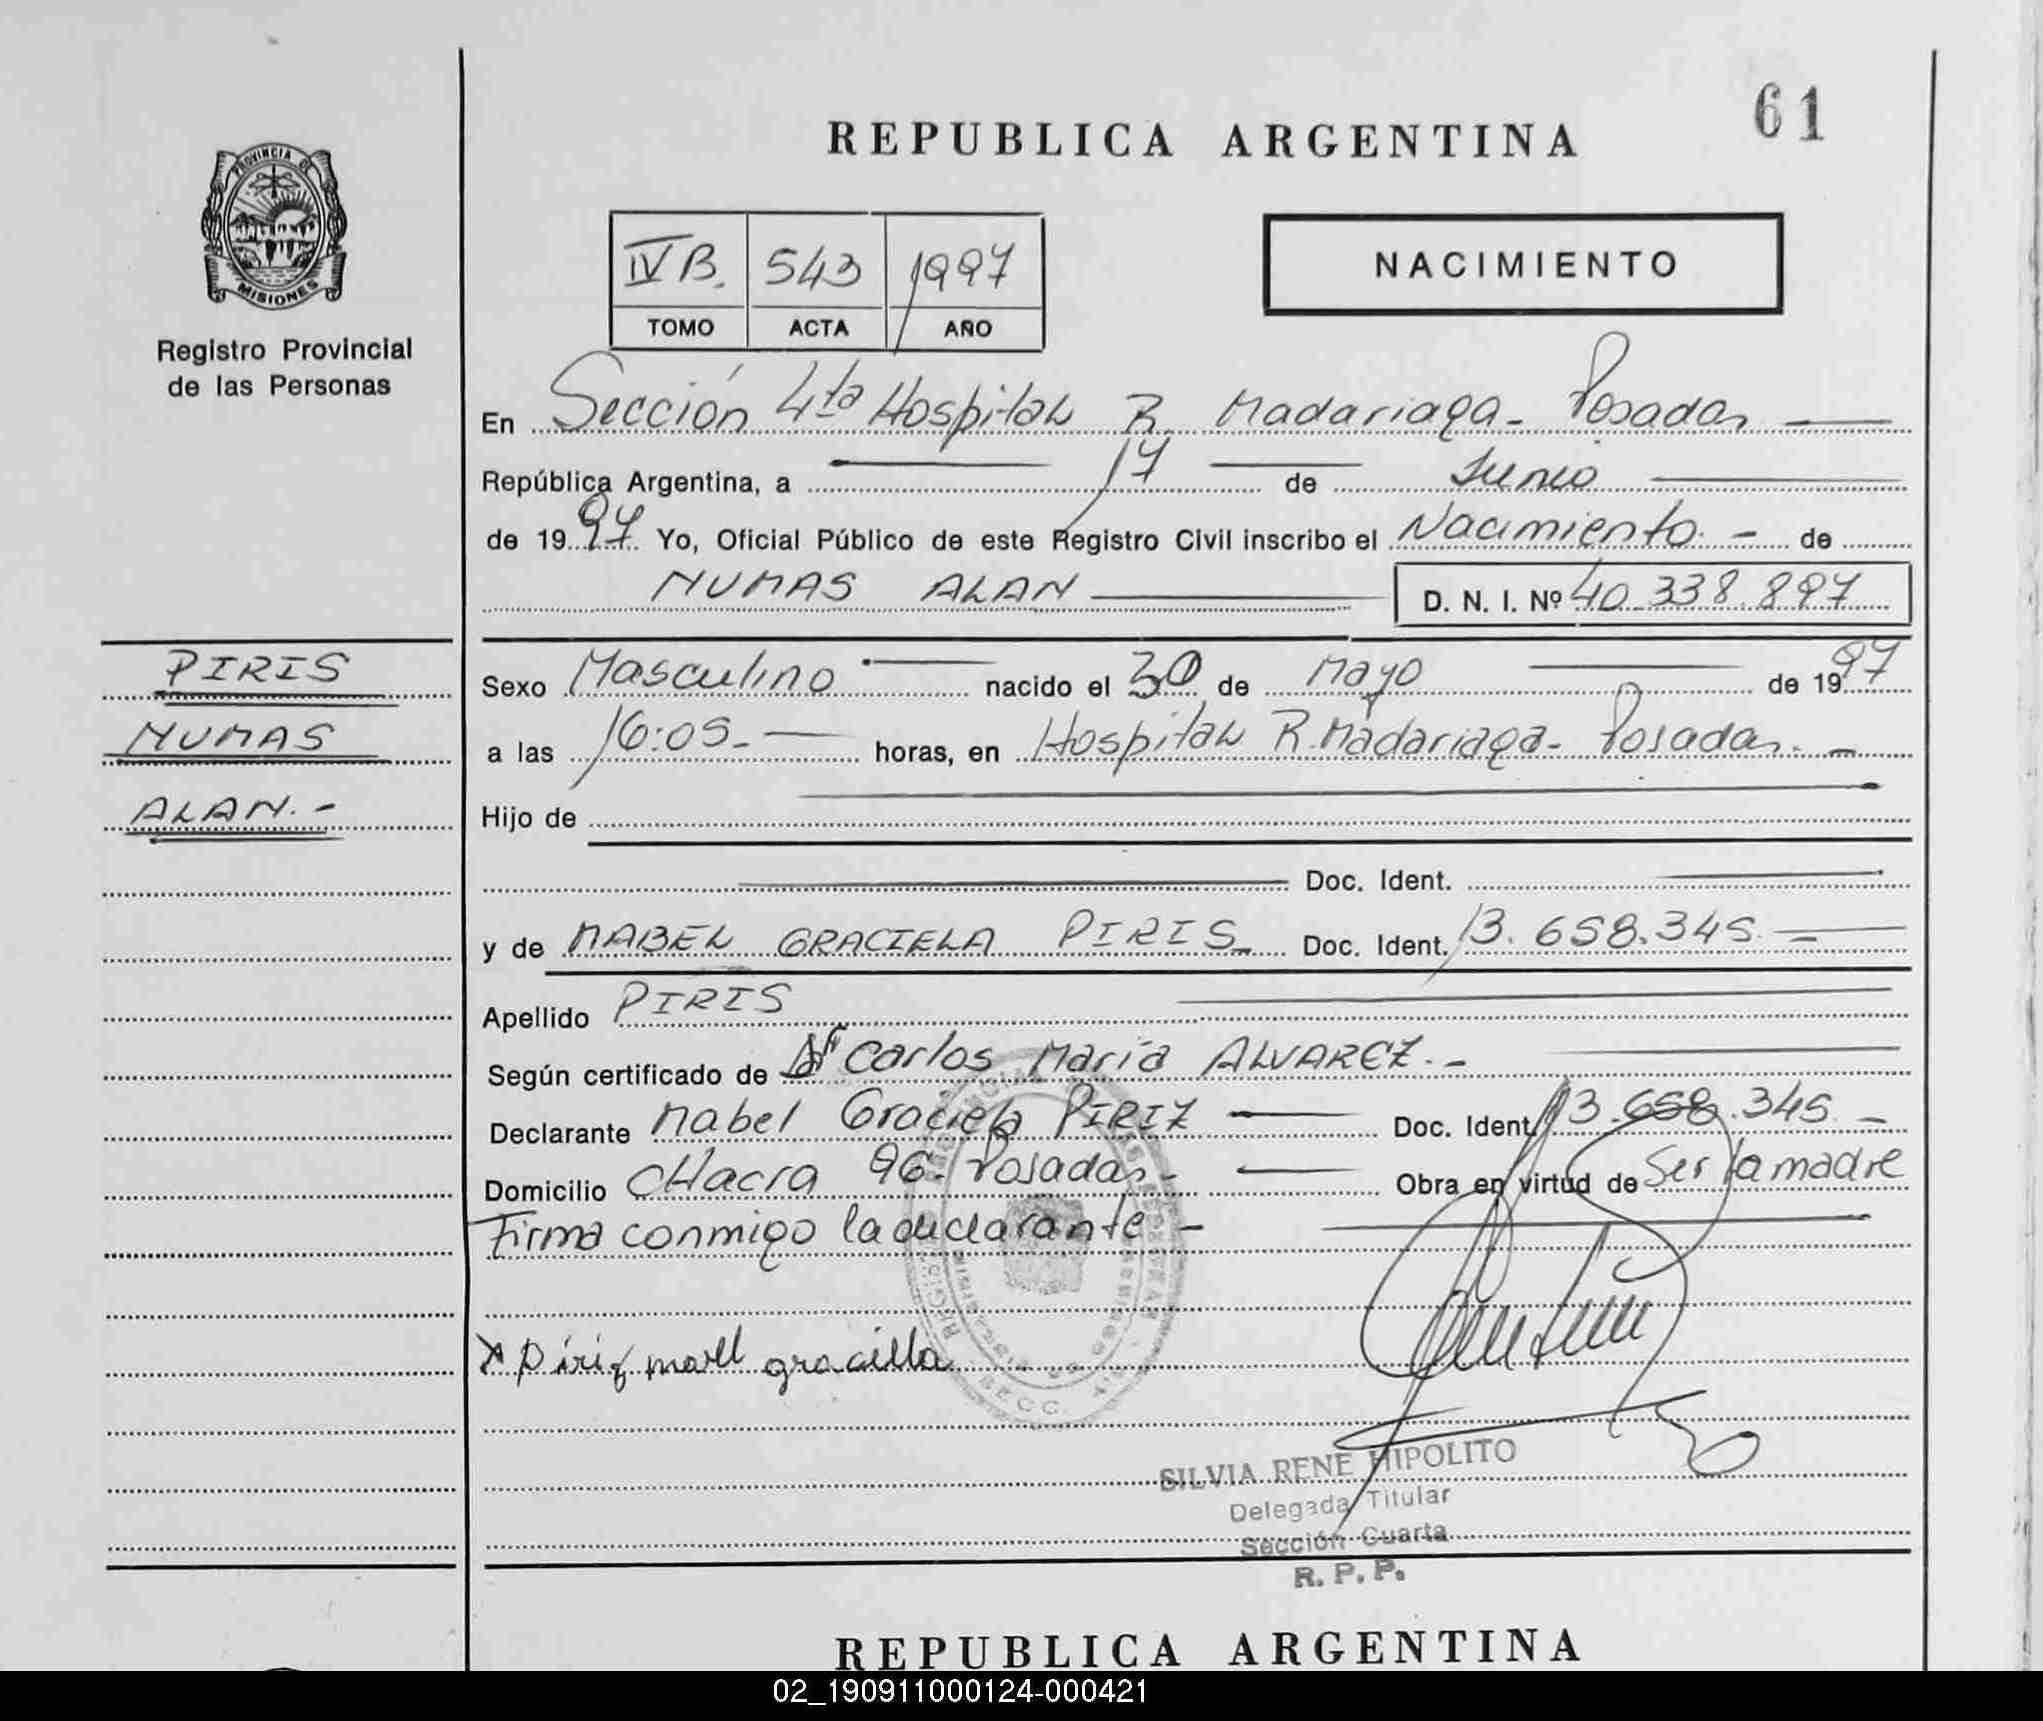 61
REPUBLICA ARGENTINA
PROVINCIA DE
MISIONES
IV B. 543 1997
TOMO ACTA AÑO
NACIMIENTO
Registro Provincial
de las Personas
En Sección 4ta Hospital R. Madariaga - Posadas
República Argentina, a 17 de Junio
de 1997 Yo, Oficial Público de este Registro Civil inscribo el Nacimiento. - de
NUMAS ALAN D. N. I. Nº 40.338.897
PIRIS
NUMAS
ALAN.-
Sexo Masculino nacido el 30 de Mayo de 1997
a las 16:05.- horas, en Hospital R. Madariaga - Posadas. -
Hijo de
Doc. Ident.
y de MABEL GRACIELA PIRIS - Doc. Ident. 13.658.345. -
Apellido PIRIS
Según certificado de Carlos María ALVAREZ. -
Declarante Mabel Graciela PIRIZ Doc. Ident. 13.658.345 -
Domicilio CHacra 96 - Posadas - Obra en virtud de Ser la madre
Firma conmigo la declarante -
x Piriz marll gracilla
SILVIA RENE HIPOLITO
Delegada Titular
Sección Cuarta
R. P. P.
REPUBLICA ARGENTINA
02_190911000124-000421